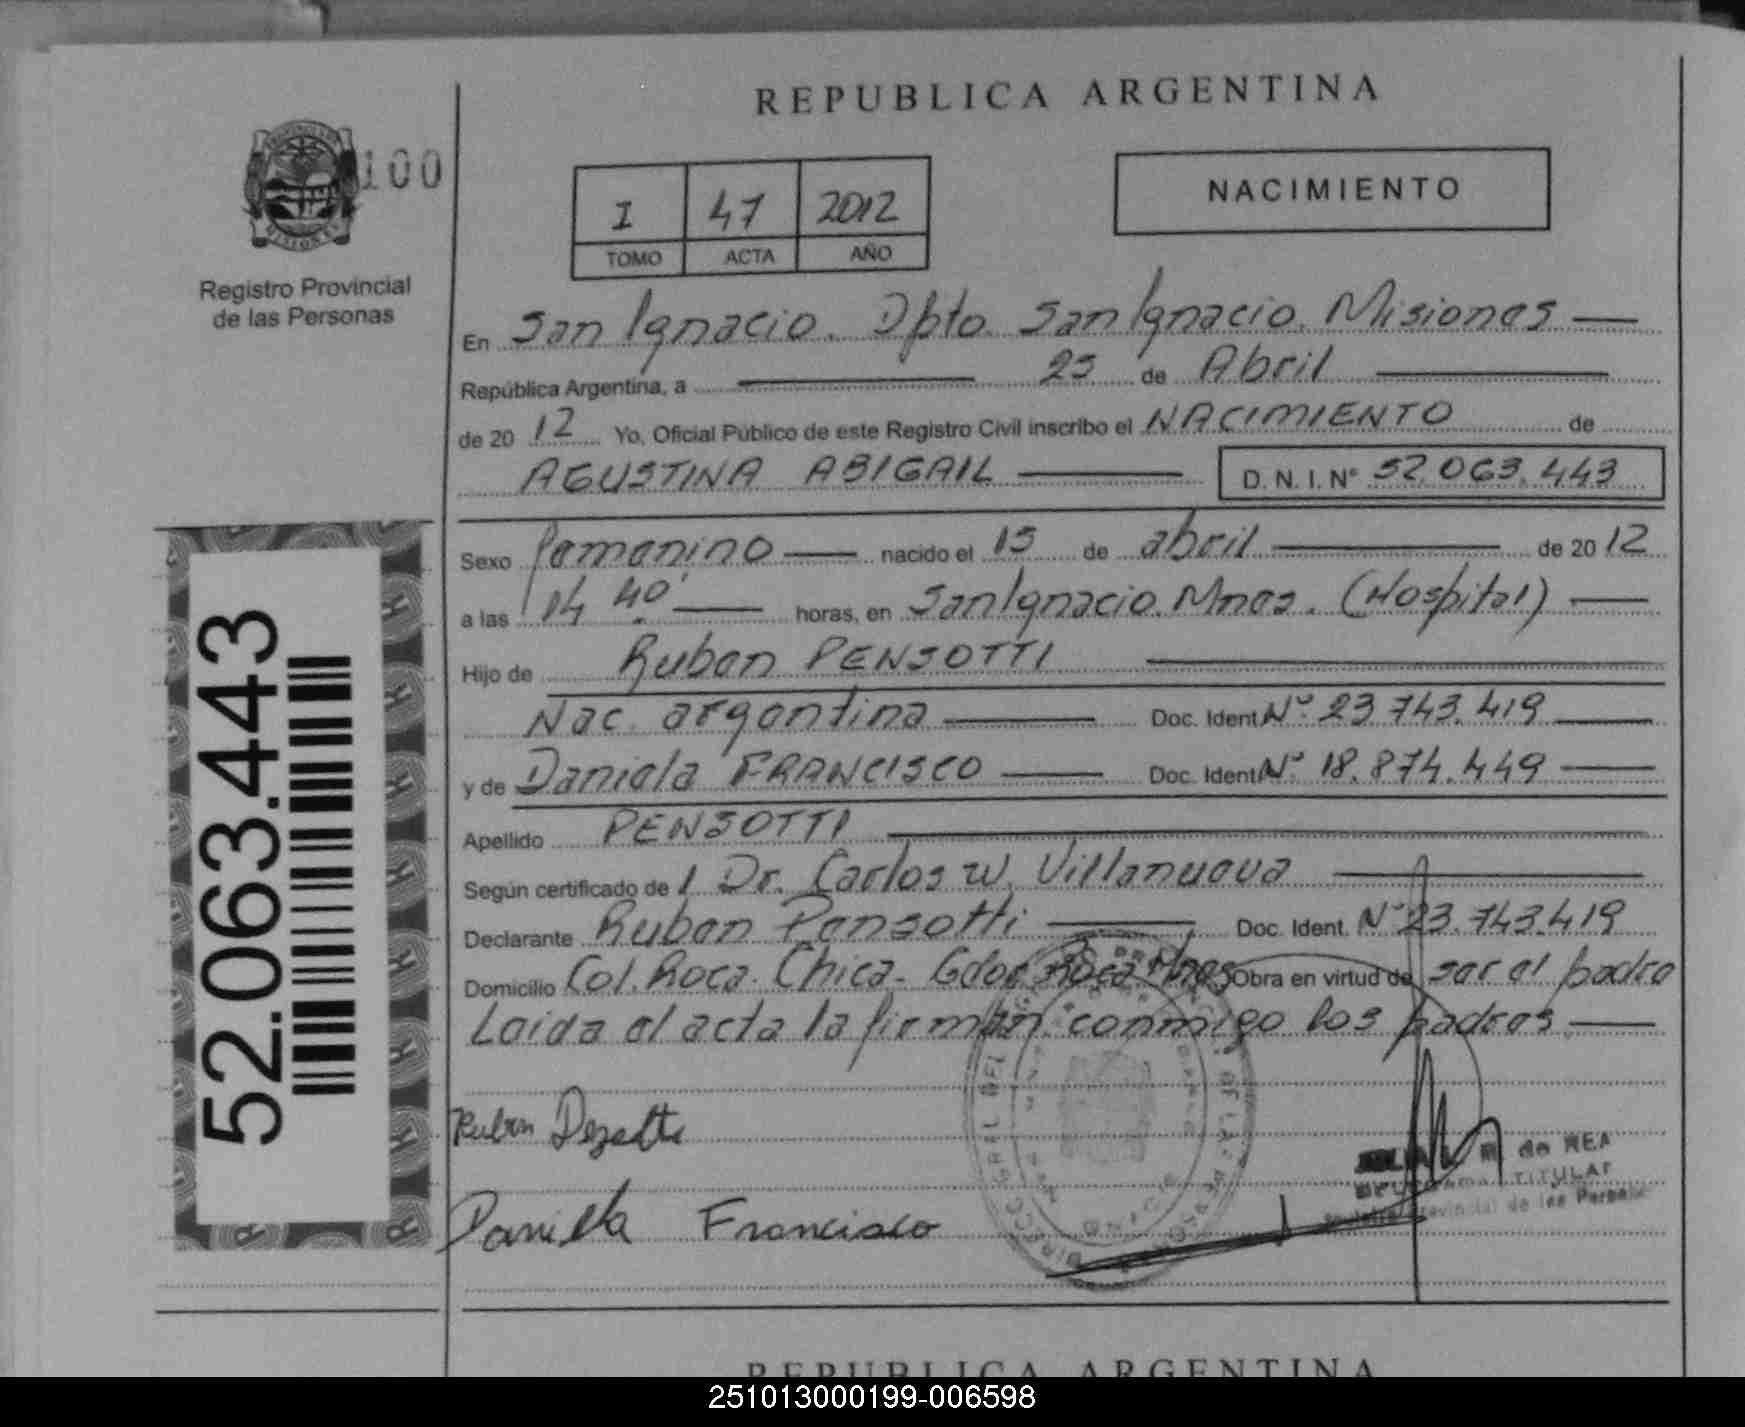 REPUBLICA ARGENTINA
100
NACIMIENTO
I 47 2012
TOMO ACTA AÑO
Registro Provincial
de las Personas
En San Ignacio. Dpto. San Ignacio. Misiones
República Argentina, a 25 de Abril
de 20 12 Yo, Oficial Público de este Registro Civil inscribo el NACIMIENTO de
AGUSTINA ABIGAIL D. N. I. Nº 52.063.443
Sexo femenino nacido el 15 de abril de 20 12
a las 14 40' horas, en San Ignacio. Mnes. (Hospital)
Hijo de Ruben PENSOTTI
Nac. argentina Doc. Ident. Nº 23.743.419
y de Daniela FRANCISCO Doc. Ident. Nº 18.874.449
Apellido PENSOTTI
Según certificado de l Dr. Carlos W. Villanueva
Declarante Ruben Pensotti Doc. Ident. Nº 23.743.419
Domicilio Col. Roca. Chica. Gdor. Roca. Mnes Obra en virtud de ser el padre
Leida el acta la firman conmigo los padres
52.063.443
Ruben
Daniela Francisco
R. de REA
TITULAR
Provincial de las Personas
REPUBLICA ARGENTINA
251013000199-006598